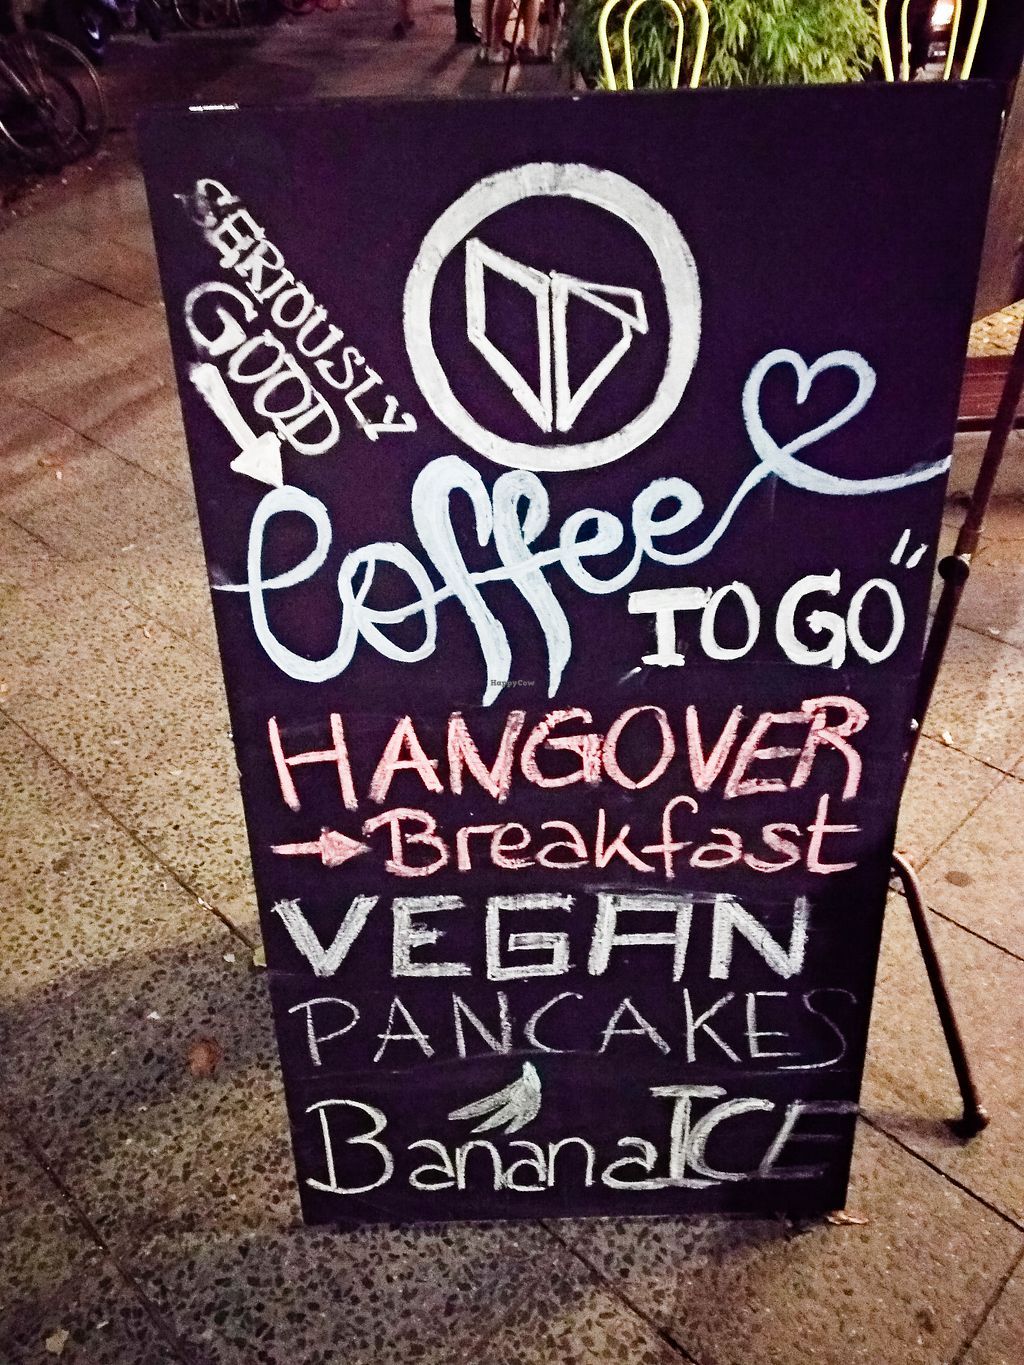 SERIOUSLY
GOOD
Coffee
TO GO"
HappyCow
HANGOVER
Breakfast
VEGAN
PANCAKES
Banana ICE